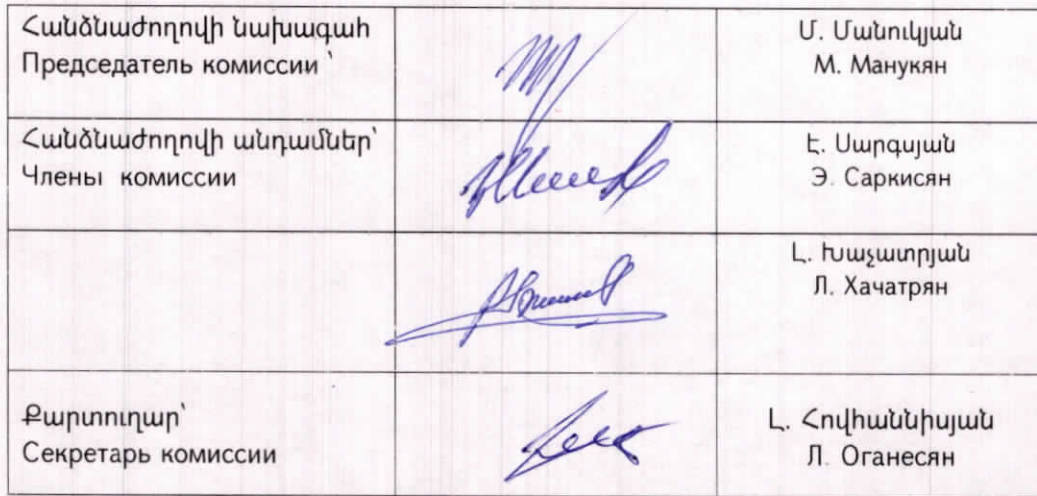 Հանձնաժողովի նախագահ
Председатель комиссии ՝
Մ. Մանուկյան
М. Манукян
Հանձնաժողովի անդամներ՝
Члены комиссии
Է. Սարգսյան
Э. Саркисян
Լ. Խաչատրյան
Л. Хачатрян
Քարտուղար՝
Секретарь комиссии
Լ. Հովհաննիսյան
Л. Оганесян